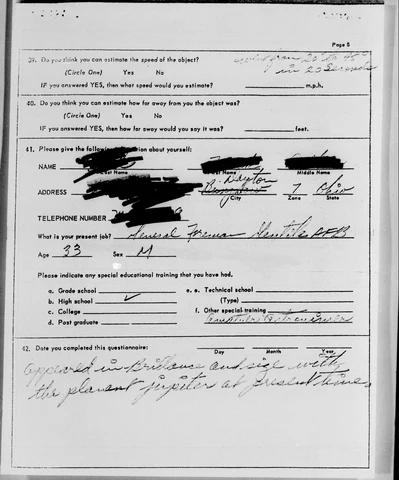 Page 5
39. Do you think you can estimate the speed of the object?
(Circle One) Yes No
20° to 45°
in 20 seconds
IF you answered YES, then what speed would you estimate? m.p.h.
40. Do you think you can estimate how far away from you the object was?
(Circle One) Yes No
IF you answered YES, then how far away would you say it was? feet.
41. Please give the following information about yourself:
NAME
Last Name Middle Name
Dayton
ADDRESS 7 Ohio
City Zone State
TELEPHONE NUMBER
What is your present job? General Foreman Gentile AFB
Age 33 Sex M
Please indicate any special educational training that you have had.
a. Grade school e. e. Technical school
b. High school ✓ (Type)
c. College f. Other special training
d. Post graduate
42. Date you completed this questionnaire:
Day Month Year
appeared in Brillance and size with
the planent jupiter at present time.